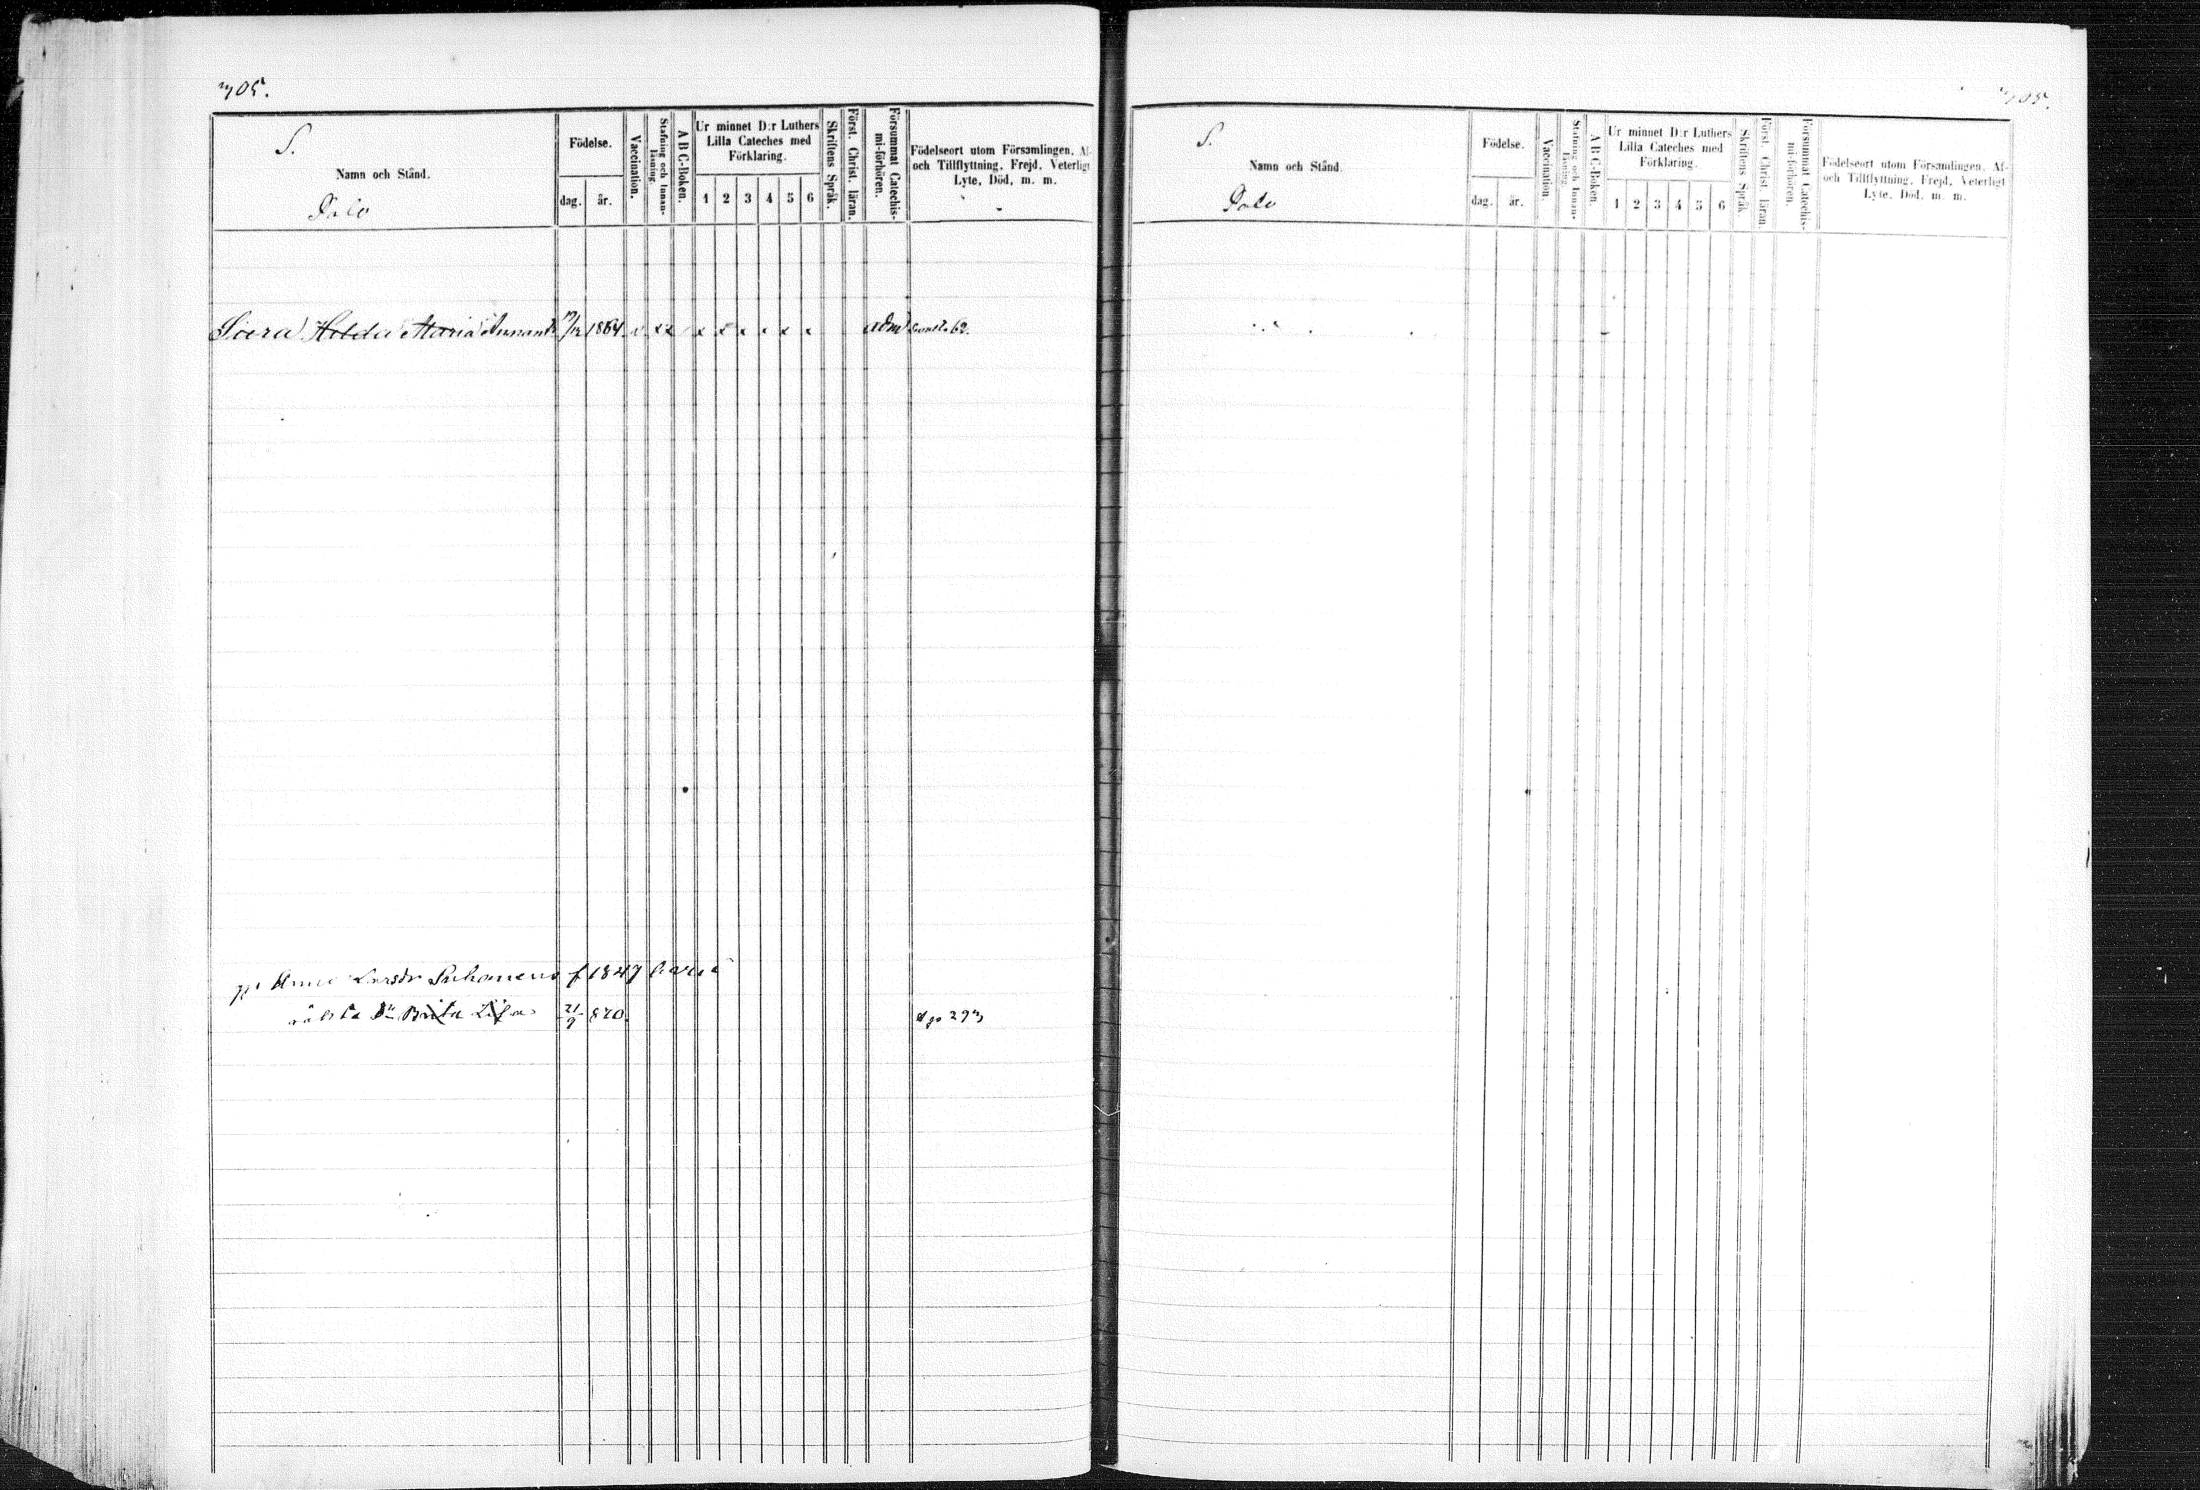 705.
S.
Namn och Stånd.
Palo
Födelse.
dag. år.
Vaccination.
Stafning och Innan-
läsning.
A B C-Boken.
Ur minnet D:r Luthers
Lilla Cateches med
Förklaring.
1 2 3 4 5 6
Skriftens Språk.
Först. Christ. läran.
Försummat Catechis-
mi-förhören.
Födelseort utom Församlingen, Af-
och Tillflyttning, Frejd, Veterligt
Lyte, Död, m. m.
Maria 1864. x x x x x x x x adm 62.
Larsdr 1847
Dr Brita Lisa 21/9 870. 293
705.
S.
Namn och Stånd.
Palo
Födelse.
dag. år.
Vaccination.
Stafning och Innan-
läsning.
A B C-Boken.
Ur minnet D:r Luthers
Lilla Cateches med
Förklaring.
1 2 3 4 5 6
Skriftens Språk
Först. Christ. läran.
Försummat Catechis-
mi-förhören.
Födelseort utom Församlingen, Af-
och Tillflyttning, Frejd, Veterligt
Lyte, Död, m. m.